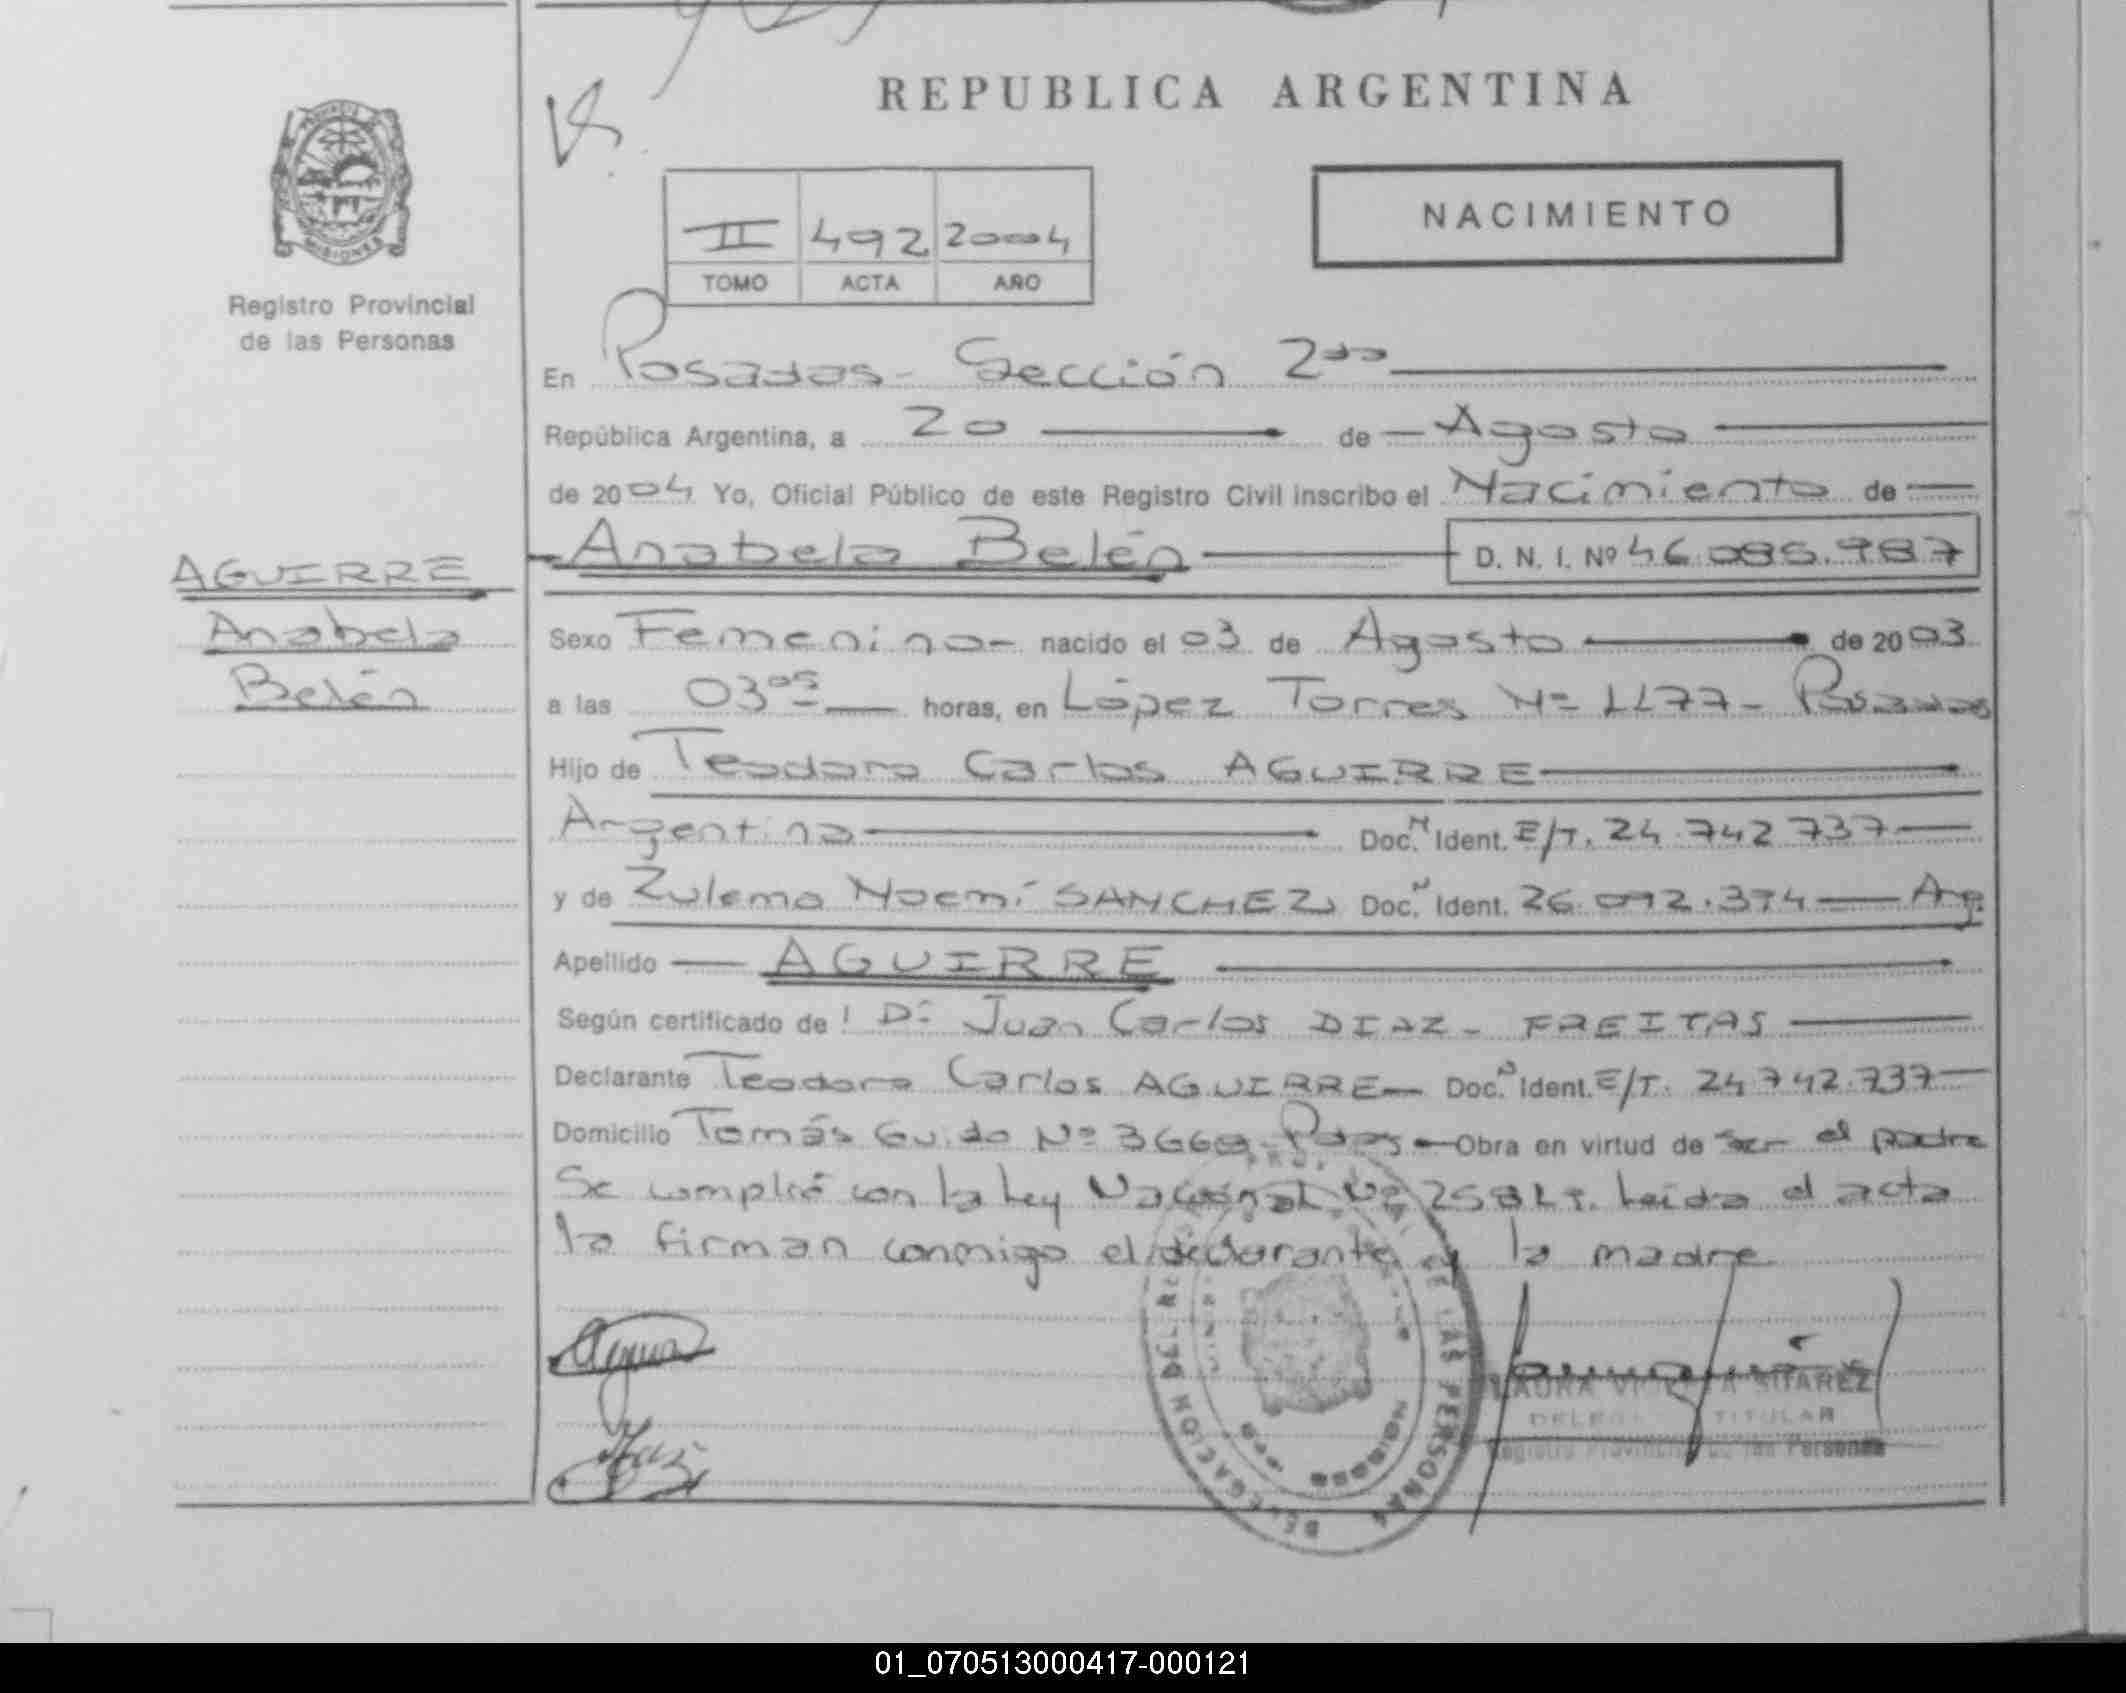 REPUBLICA ARGENTINA
PROVINCIA DE MISIONES
Registro Provincial
de las Personas
II 492 2004
TOMO ACTA AÑO
NACIMIENTO
En Posadas - Sección 2da
República Argentina, a 20 de Agosto
de 2004 Yo, Oficial Público de este Registro Civil inscribo el Nacimiento de
Anabela Belén D. N. I. Nº 46.085.987
AGUIRRE
Anabela
Belén
Sexo Femenino - nacido el 03 de Agosto de 2003
a las 03 05 horas, en López Torres Nº 1177 - Posadas
Hijo de Teodoro Carlos AGUIRRE
Argentina Doc. N Ident. E/T. 24.742.737
y de Zulema Noemí SANCHEZ Doc. N Ident. 26.092.374 Arg.
Apellido AGUIRRE
Según certificado de: Dr Juan Carlos DIAZ - FREITAS
Declarante Teodoro Carlos AGUIRRE Doc. N Ident. E/T. 24.742.737
Domicilio Tomás Guido Nº 3660 - Pdas Obra en virtud de ser el padre
Se cumplió con la Ley Nacional Nº Leída el acta
la firman conmigo el declarante y la madre
LAURA VIOLETA SUAREZ
DELEGADA TITULAR
Registro Provincial de las Personas
DELEGACION DEL REGISTRO PROVINCIAL DE LAS PERSONAS
01_070513000417-000121